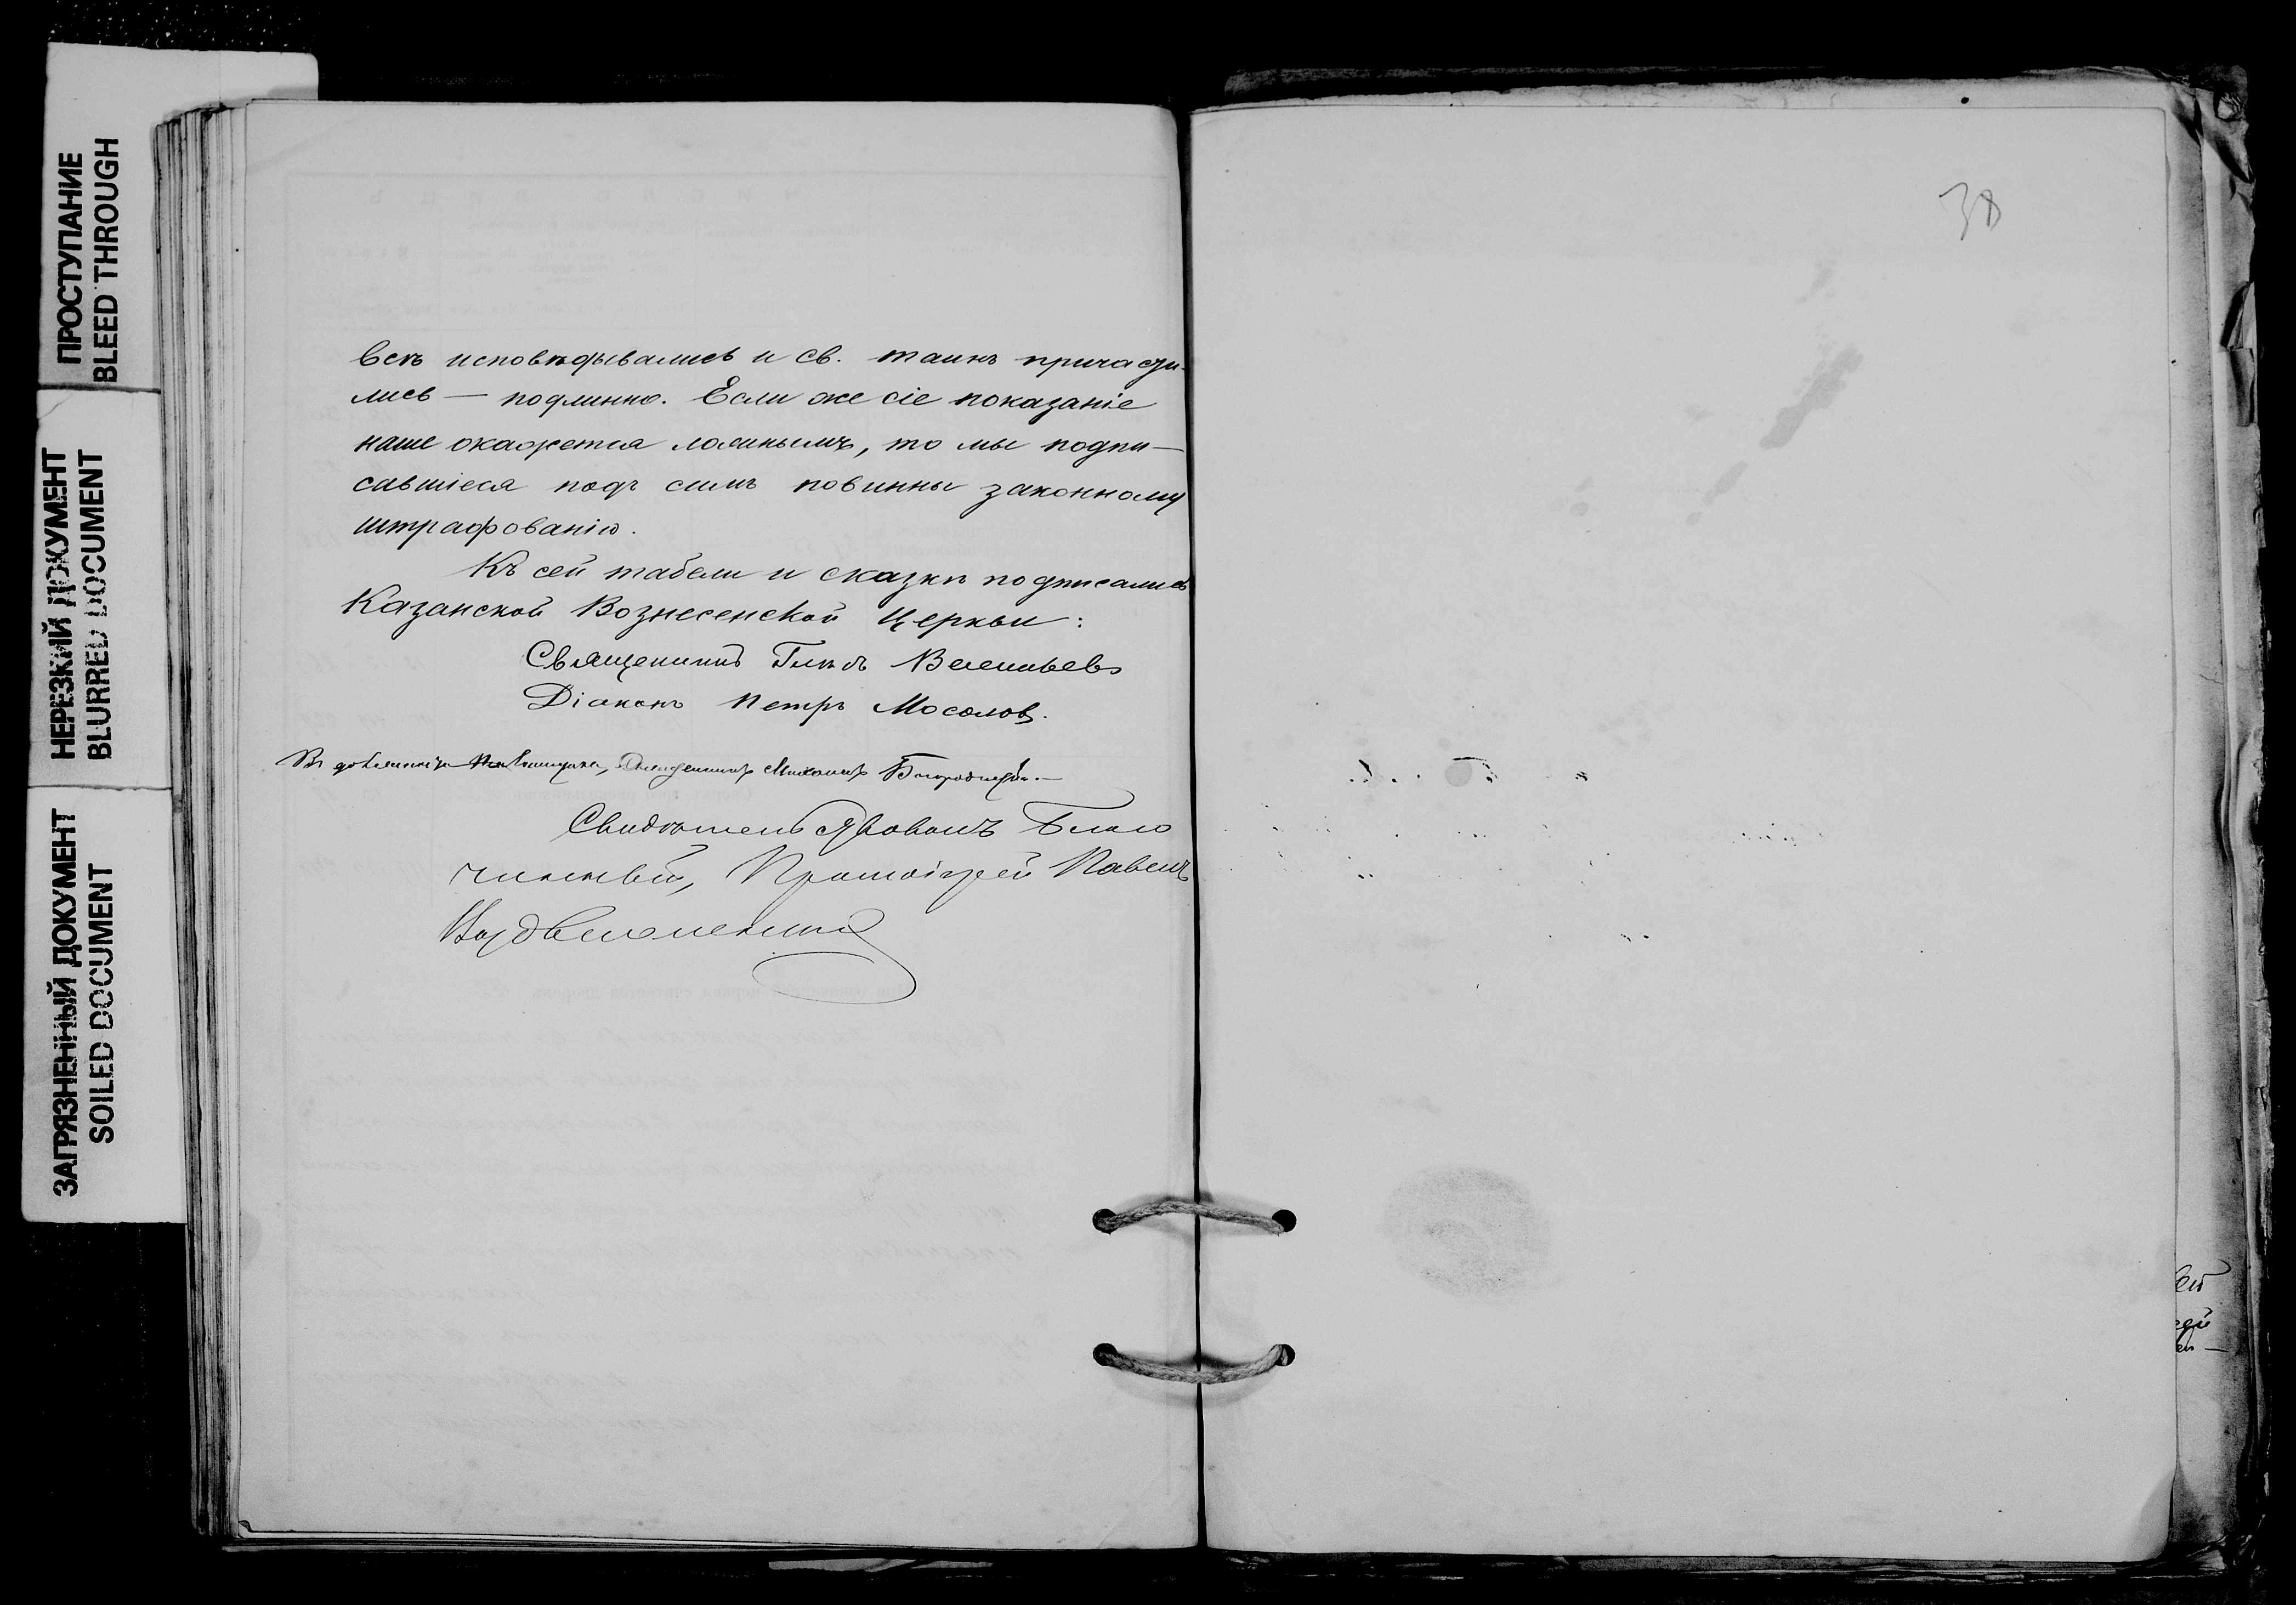 ПРОСТУПАНИЕ
BLEED THROUGH
НЕРЕЗКИЙ ДОКУМЕНТ
BLURRED DOCUMENT
ЗАГРЯЗНЕННЫЙ ДОКУМЕНТ
SOILED DOCUMENT
всѣ исповѣдывались и св. таинъ причасти-
лись — подлинно. Если же сіе показаніе
наше окажется ложнымъ, то мы подпи-
савшіеся подъ симъ повинны законному
штрафованію.
Къ сей табели и сказкѣ подписались
Казанской Вознесенской Церкви:
Священникъ Глѣбъ
Діаконъ Петръ Мосолов.
Священникъ
Свидѣтельствовалъ Благо
чинный, Протоіерей Павелъ
Воздвиженскій
38